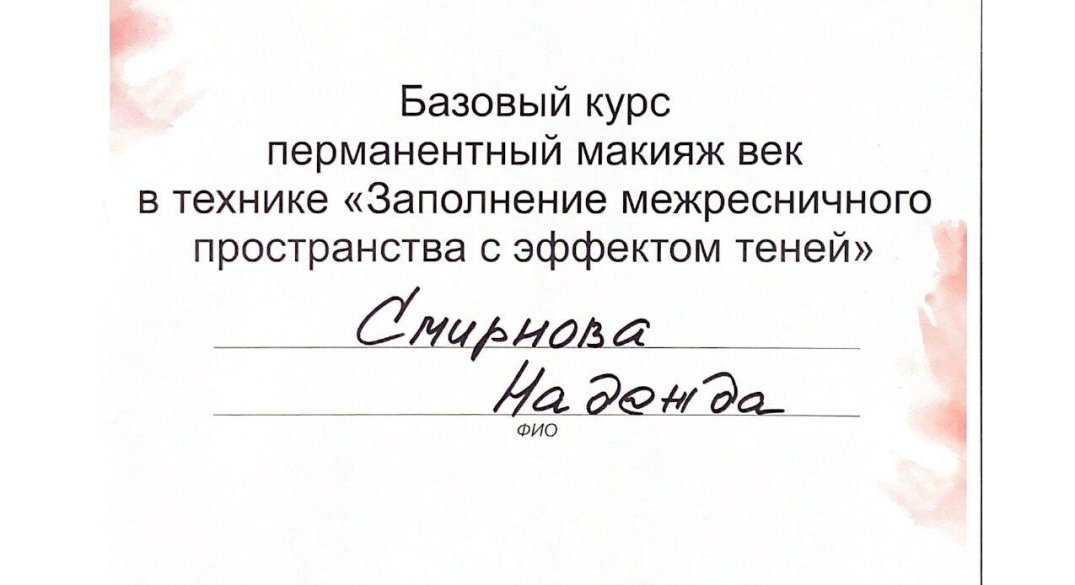 Базовый курс
перманентный макияж век
в технике «Заполнение межресничного
пространства с эффектом теней»
Смирнова
Надежда
ФИО